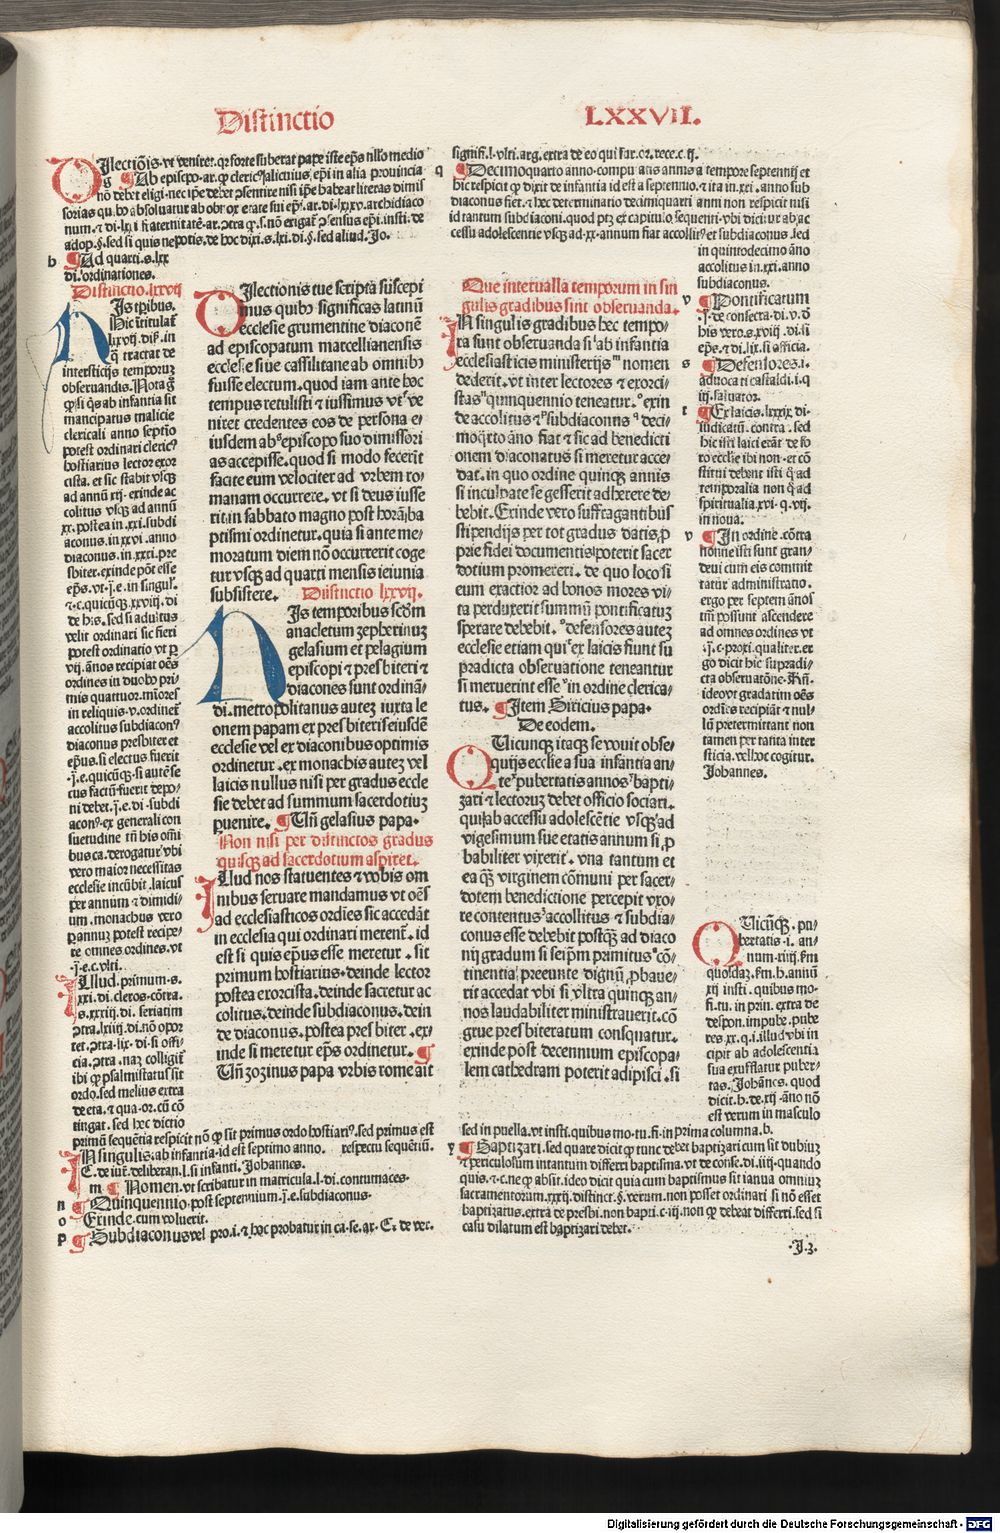 Distinctio
LXXVII.
Ilectiōis. vt veniret. qꝛ forte suberat pape iste ep̄s nullo medio
g ¶ Ab episcopo. ar. ꝙ clericꝰ alicuius ep̄i in alia prouincia
nō debet eligi. nec ip̄e debet ꝯsentire nisi ip̄e habeat literas dimis
sorias
num. ⁊ di. lxi
adop. §. sed si quis nepotis. de hoc dixi. s. lxi. di. §. sed aliud. Jo.
h ¶ Ad quarti. s. lxx
di. ordinationes.
Distinctio. lxxvij
Is tꝑibus.
Hic ītitulat̄
lxxvij. dis̄. in
q̄ tractat de
intersticijs temporuꝫ
obseruandis. Nota ḡ
ꝙ si q̄s ab infantia sit
mancipatus malicie
clericali anno septīo
potest ordinari clericꝰ
hostiarius lector exor
cista. et sic stabit vsqꝫ
ad annū xij. exinde ac
colitus vsqꝫ ad annū
xx. postea in. xxi. subdi
aconus. in xxvi. anno
diaconus. in. xxxi. pre
sbiter. exinde pōt esse
ep̄s. vt. j. e. in singul̄.
⁊. c. quicūqꝫ. xxviij. di
de his. sed si adultus
velit ordinari sic fieri
potest ordinatio vt ꝑ
vij. ānos recipiat oēs
ordines in duobꝰ pri
mis quattuor. mīores
in reliquis. v. ordinet̄
accolitus subdiaconꝰ
diaconus presbiter et
ep̄us. si electus fuerit
. j. e. quicūqꝫ. si autē se
cus factū fuerit depo-
ni debet. j. e. di. subdi
aconꝰ. ex generali con
suetudine tn̄ his oīni
bus ca. derogatur vbi
vero maior necessitas
ecclesie incūbit. laicus
per annum ⁊ dimidi-
um. monachus vero
ꝑ annuꝫ potest recipe-
re omnes ordines. vt
. j. e. c. vlti.
Illud. primum. s.
xxi. di. cleros. cōtra.
s. xxxiij. di. seriatim
ꝯtra. lxiiij. di. nō opor
tet. ꝯtra. lix. di. si offi-
cia. ꝯtra. naꝫ colligit̄
ibi ꝙ psalmistatus sit
ordo. sed melius extra
de eta. ⁊ qua. or. cū cō
tingat. sed hec dictio
primū sequētia respicit nō ꝙ sit primus ordo hostiariꝰ. sed primus est
In singulis. ab infantia. id est septimo anno. respectu sequētiū.
C. de iur̄. deliberan. l. si infanti. Johannes.
m ¶ Nomen. vt scribatur in matricula. l. di. contumaces.
n ¶ Quinquennio. post septennium. j. e. subdiaconus.
o ¶ Exinde. cum voluerit.
p ¶ Subdiaconus vel pro. i. ⁊ hoc probatur in ca. se. ar. C. de vec.
Ilectionis tue scriptā suscepi
mus quibꝰ significas latinū
ecclesie grumentine diaconē
ad episcopatum marcellianensis
ecclesie siue cassilitane ab omnibꝰ
fuisse electum. quod iam ante hoc
tempus retulisti ⁊ iussimus vt ve
niret credentes eos de persona e-
iusdem ab episcopo suo dimissori
as accepisse. quod si modo fecerit
facite eum velociter ad vrbem ro-
manam occurrere. vt si deus iusse
rit. in sabbato magno post horā ba
ptismi ordinetur. quia si ante me-
moratum diem nō occurrerit coge
tur vsqꝫ ad quarti mensis ieiunia
subsistere. Distinctio lxxvij.
Is temporibus scdm̄
anacletum zepherinuꝫ
gelasium et pelagium
episcopi ⁊ presbiteri ⁊
diacones sunt ordinā-
di. metropolitanus autez iuxta le
onem papam ex presbiteris eiusdē
ecclesie vel ex diaconibus optimis
ordinetur. ex monachis autez vel
laicis nullus nisi per gradus eccle
sie debet ad summum sacerdotiuꝫ
ꝑuenire. ¶ Vn̄ gelasius papa.
Non nisi per distinctos gradus
quisqꝫ ad sacerdotium aspiret.
Illud nos statuentes ⁊ vobis om
nibus seruare mandamus vt oēs
ad ecclesiasticos ordies sic accedāt
in ecclesia qui ordinari merent̄. id
est si quis ep̄us esse meretur. sit
primum hostiarius. deinde lector
postea exorcista. deinde sacretur ac
colitus. deinde subdiaconus. dein
de diaconus. postea presbiter. ex-
inde si meretur ep̄s ordinetur. ¶
Vn̄ zozinus papa vrbis rome ait
signifi. l. vlti. arg. extra de eo qui fur. or. rece. c. ij.
q ¶ Decimoquarto anno. computatis annis a tempore septennij et
hic respicit ꝙ dixit de infantia id est a septennio. ⁊ ita in. xxi. anno sub
diaconus fiet. ⁊ hec determinatio decimiquarti anni non respicit nisi
id tantum subdiaconi. quod ptꝫ ex capitulo. sequenti. vbi dicitur ab ac
cessu adolescentie vsqꝫ ad. xx. annum fiat accolitꝰ et subdiaconus. sed
in quintodecimo āno
accolitus in. xxi. anno
subdiaconus.
Que interualla temporum in sin
gulis gradibus sint obseruanda.
In singulis gradibus hec tempo-
ra sunt obseruanda si ab infantia
ecclesiasticis ministerijs nomen
dederit. vt inter lectores ⁊ exorci-
stas quinquennio teneatur. exin
de accolitus ⁊ subdiaconus deci-
moq̄rto āno fiat ⁊ sic ad benedicti
onem diaconatus si meretur acce
dat. in quo ordine quinqꝫ annis
si inculpate se gesserit adherere de-
bebit. Exinde vero suffragantibus
stipendijs per tot gradus datis. ꝓ
prie fidei documentis poterit sacer
dotium promereri. de quo loco si
eum exactior ad bonos mores vi-
ta perduxerit summū pontificatuꝫ
sperare debebit. defensores autez
ecclesie etiam qui ex laicis fiunt su
pradicta obseruatione teneantur
si meruerint esse in ordine clerica-
tus. ¶ Item Siricius papa.
De eodem.
Quicunqꝫ itaqꝫ se vouit obse-
quijs ecclīe a sua infantia an-
te pubertatis annos bapti-
zari ⁊ lectoruꝫ debet officio sociari.
qui ab accessu adolescētie vsqꝫ ad
vigesimum sue etatis annum si ꝓ
babiliter vixerit. vna tantum et
ea q̄ꝫ virginem cōmuni per sacer-
dotem benedictione percepit vxo-
re contentus accollitus ⁊ subdia-
conus esse debebit postq̄ꝫ ad diaco
nij gradum si seip̄m primitus cō-
tinentia preeunte dignū ꝓbaue-
rit accedat vbi si vltra quinqꝫ an-
nos laudabiliter ministrauerit. cō
grue presbiteratum consequatur.
exinde post decennium episcopa-
lem cathedram poterit adipisci. si
r ¶ Pontificatum
. j. de consecra. di. v. d̄
his vero. s. xviij. vl. si
ep̄s. ⁊ di. lix. si officia.
s ¶ Defensores. i.
aduocati castaldi. i. q
iij. saluator.
t ¶ Ex laicis. lxxix. di-
iudicatū. contra. sed
hic isti laici erāt de fo
ro ecclīe ibi non. et cō
stitui debent isti q̄ ad
temporalia non q̄ ad
spiritualia. xvi. q. vij.
in noua.
v ¶ In ordine. cōtra
nonne isti sunt gran-
deui cum eis commit
tatur administratio.
ergo per septem ānos
tm̄ possunt ascendere
ad omnes ordines vt
. j. c. proxi. qualiter. er
go dicit hic supradi-
cta obseruatōne. Rn̄.
ideo vt gradatim oēs
ordīes recipiāt ⁊ nul-
lū pretermittant non
tamen per tanta inter
sticia. vel hoc cogitur.
Johannes.
Quicūqꝫ. pu-
bertatis. i. an-
num. xiiij. s̄m
quosdaꝫ. s̄m. h. annū
xij insti. quibus mo-
fi. tu. in prin. extra de
despon. impube. pube
res. xx. q. i. illud vbi in
cipit ab adolescentia
sua exufflatur puber-
tas. Johānes. quod
dicit. h. de. xij. āno nō
est verum in masculo
sed in puella. vt insti. quibus mo. tu. fi. in prima columna. b.
¶ Baptizari. sed quare dicit ꝙ tunc debet baptizari cum sit dubiuꝫ
⁊ periculosum intantum differri baptisma. vt de conse. di. iiij. quando
quis. ⁊. c. ne ꝙ absit. ideo dicit quia cum baptismus sit ianua omniuꝫ
sacramentorum. xxxij. distinct. §. verum. non posset ordinari si nō esset
baptizatus. extra de presbi. non bapti. c. iij. non ꝙ debeat differri. sed si
casu dilatum est baptizari debet.
.J. 3.
Digitalisierung gefördert durch die Deutsche Forschungsgemeinschaft - DFG